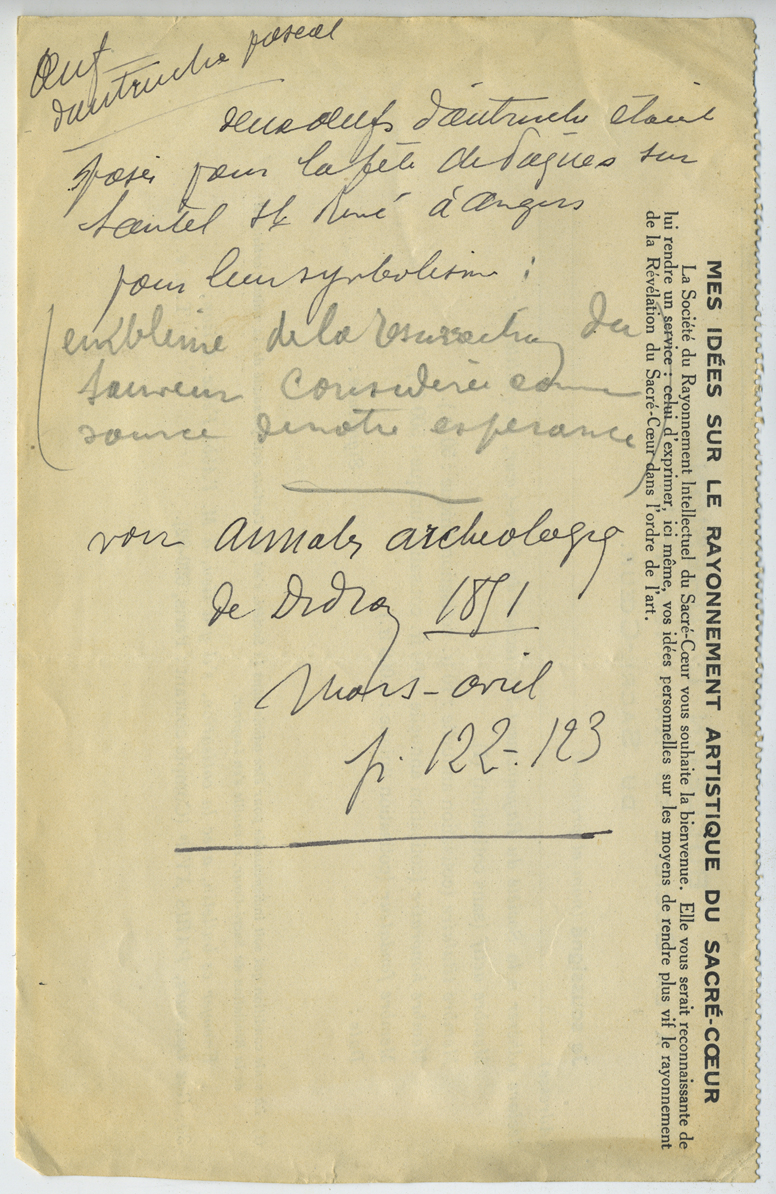 Œuf
d'autruche pascal
deux œufs d'autruche étaient
posés pour la fête de Pâques sur
l'autel St René à Angers
pour leur symbolisme :
(emblème de la résurrection du
Sauveur considérée comme
source de notre espérance)
voir Annales archéologiq
de Didron 1851
Mars-avril
p. 122-123
MES IDÉES SUR LE RAYONNEMENT ARTISTIQUE DU SACRÉ-CŒUR
La Société du Rayonnement Intellectuel du Sacré-Cœur vous souhaite la bienvenue. Elle vous serait reconnaissante de
lui rendre un service : celui d'exprimer, ici même, vos idées personnelles sur les moyens de rendre plus vif le rayonnement
de la Révélation du Sacré-Cœur dans l'ordre de l'art.